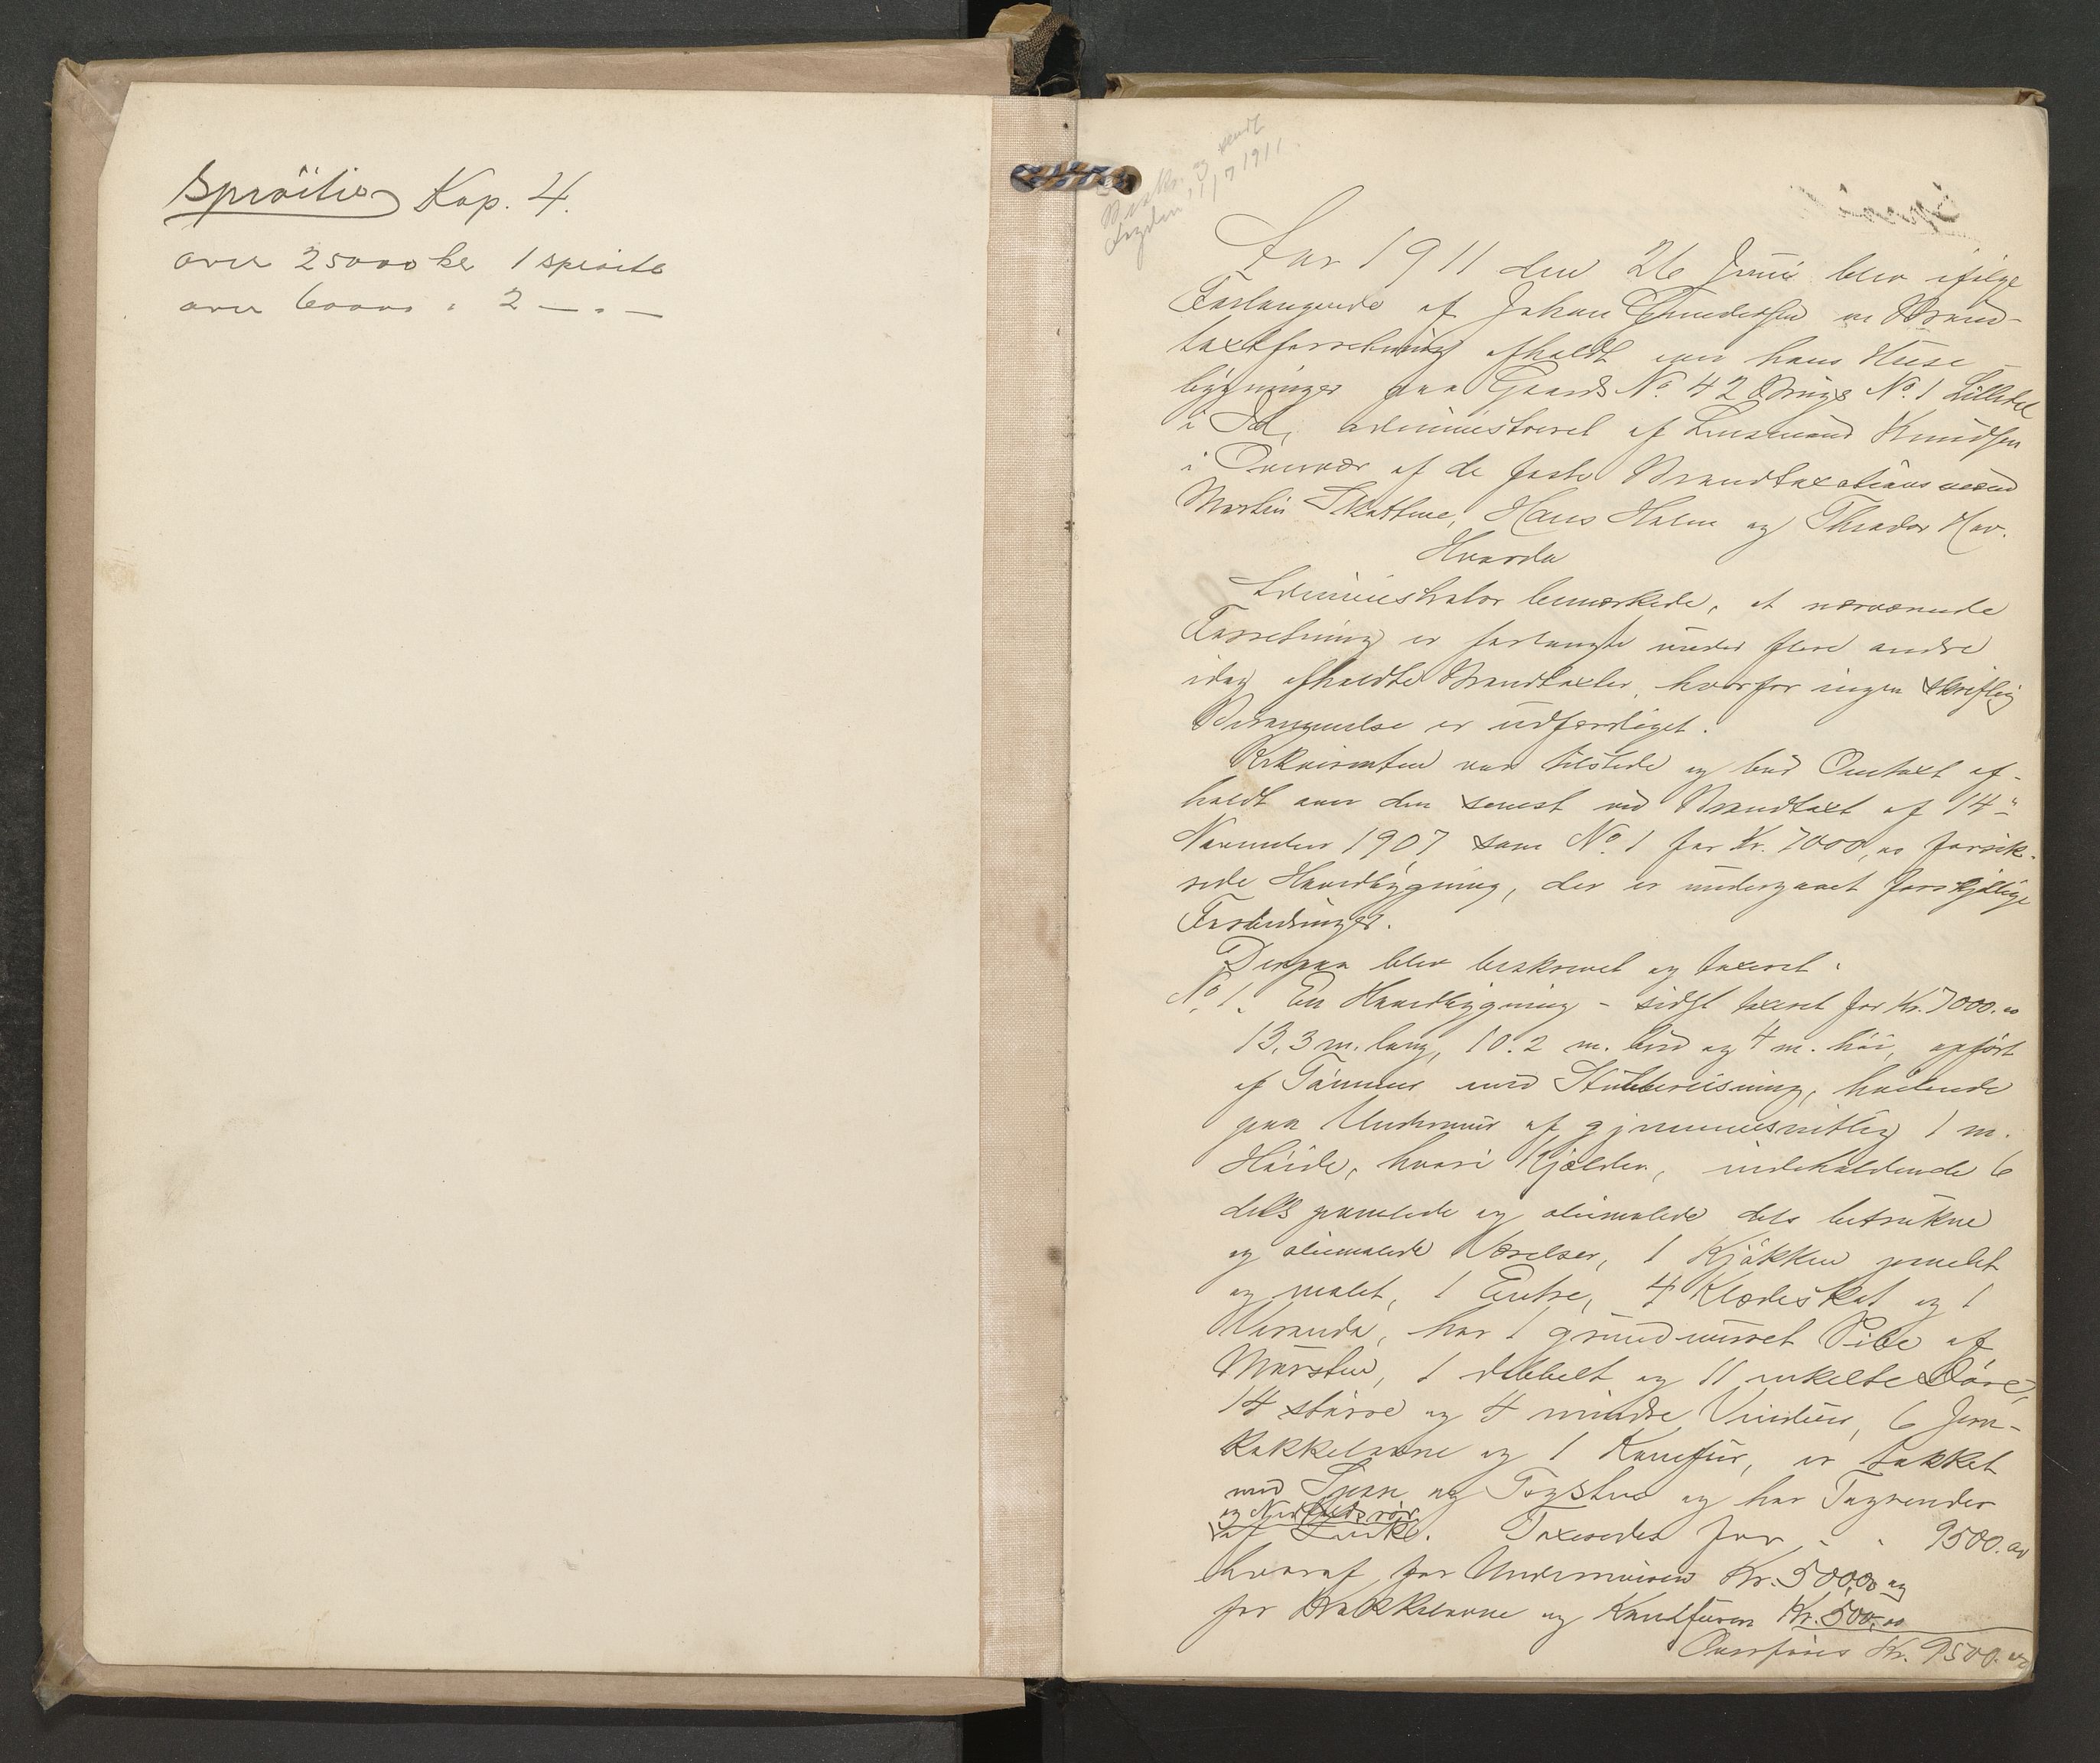 Sprøiter Kap. 4.
over 25000 kr 1 sprøite
over 60000 " 2 — " —
Beskr. og sendt
Fogden 11/7 1911.
Aar 1911 den 26 Juni blev ifølge
Forlangende af Johan Gundersen en Brand-
taxtforretning afholdt over hans Huse-
bygninger paa Gaards No. 42 Brugs No. 1 Lilledal
i Id, administreret af Lensmand Knudsen
i Overvær af de faste Brandtaxationsmænd
Martin Skattine, Hans Holm og Theodor Hov.
Hvorda
Administrator bemærkede, at nærværende
Forretning er forlangte under flere andre
idag afholdte Brandtaxter, hvorfor ingen skriftlig
Berammelse er udfærdiget.
Rekvirenten var tilstede og bad Omtaxt af-
holdt over den senest ved Brandtaxt af 14"
November 1907 som No. 1 for Kr. 7000,00 forsik-
rede Hovedbygning, der er undergaaet forskjellige
Forbedringer.
Derpaa blev beskrevet og taxeret:
No. 1. En Hovedbygning - sidst taxeret for Kr. 7000.00
13.3 m. lang, 10.2 m. bred og 4 m. høi, opført
af Tømmer med Stubbereisning, hvilende
paa Undermur af gjennemsnitlig 1 m.
Høide, hvori Kjælder, indeholdende 6
dels panelede og oliemalede dels betrukne
og oliemalede Værelser, 1 Kjøkken panelet
og malet, 1 Entre, 4 Klædeskot og 1
Veranda, har 1 grundmuret Pibe af
Mursten, 1 dobbelt og 11 enkelte Døre,
14 større og 4 mindre Vinduer, 6 Jern-
kakkelovne og 1 Komfur, er takket
med Spon og Tagsten og har Tagrender
og Nedløbsrør
af Zink. Taxeredes for - - 9500.00
hvoraf for Undermuren Kr. 500,00 og
for Kakkelovne og Komfuren Kr. 500.00
Overføres Kr. 9500.00